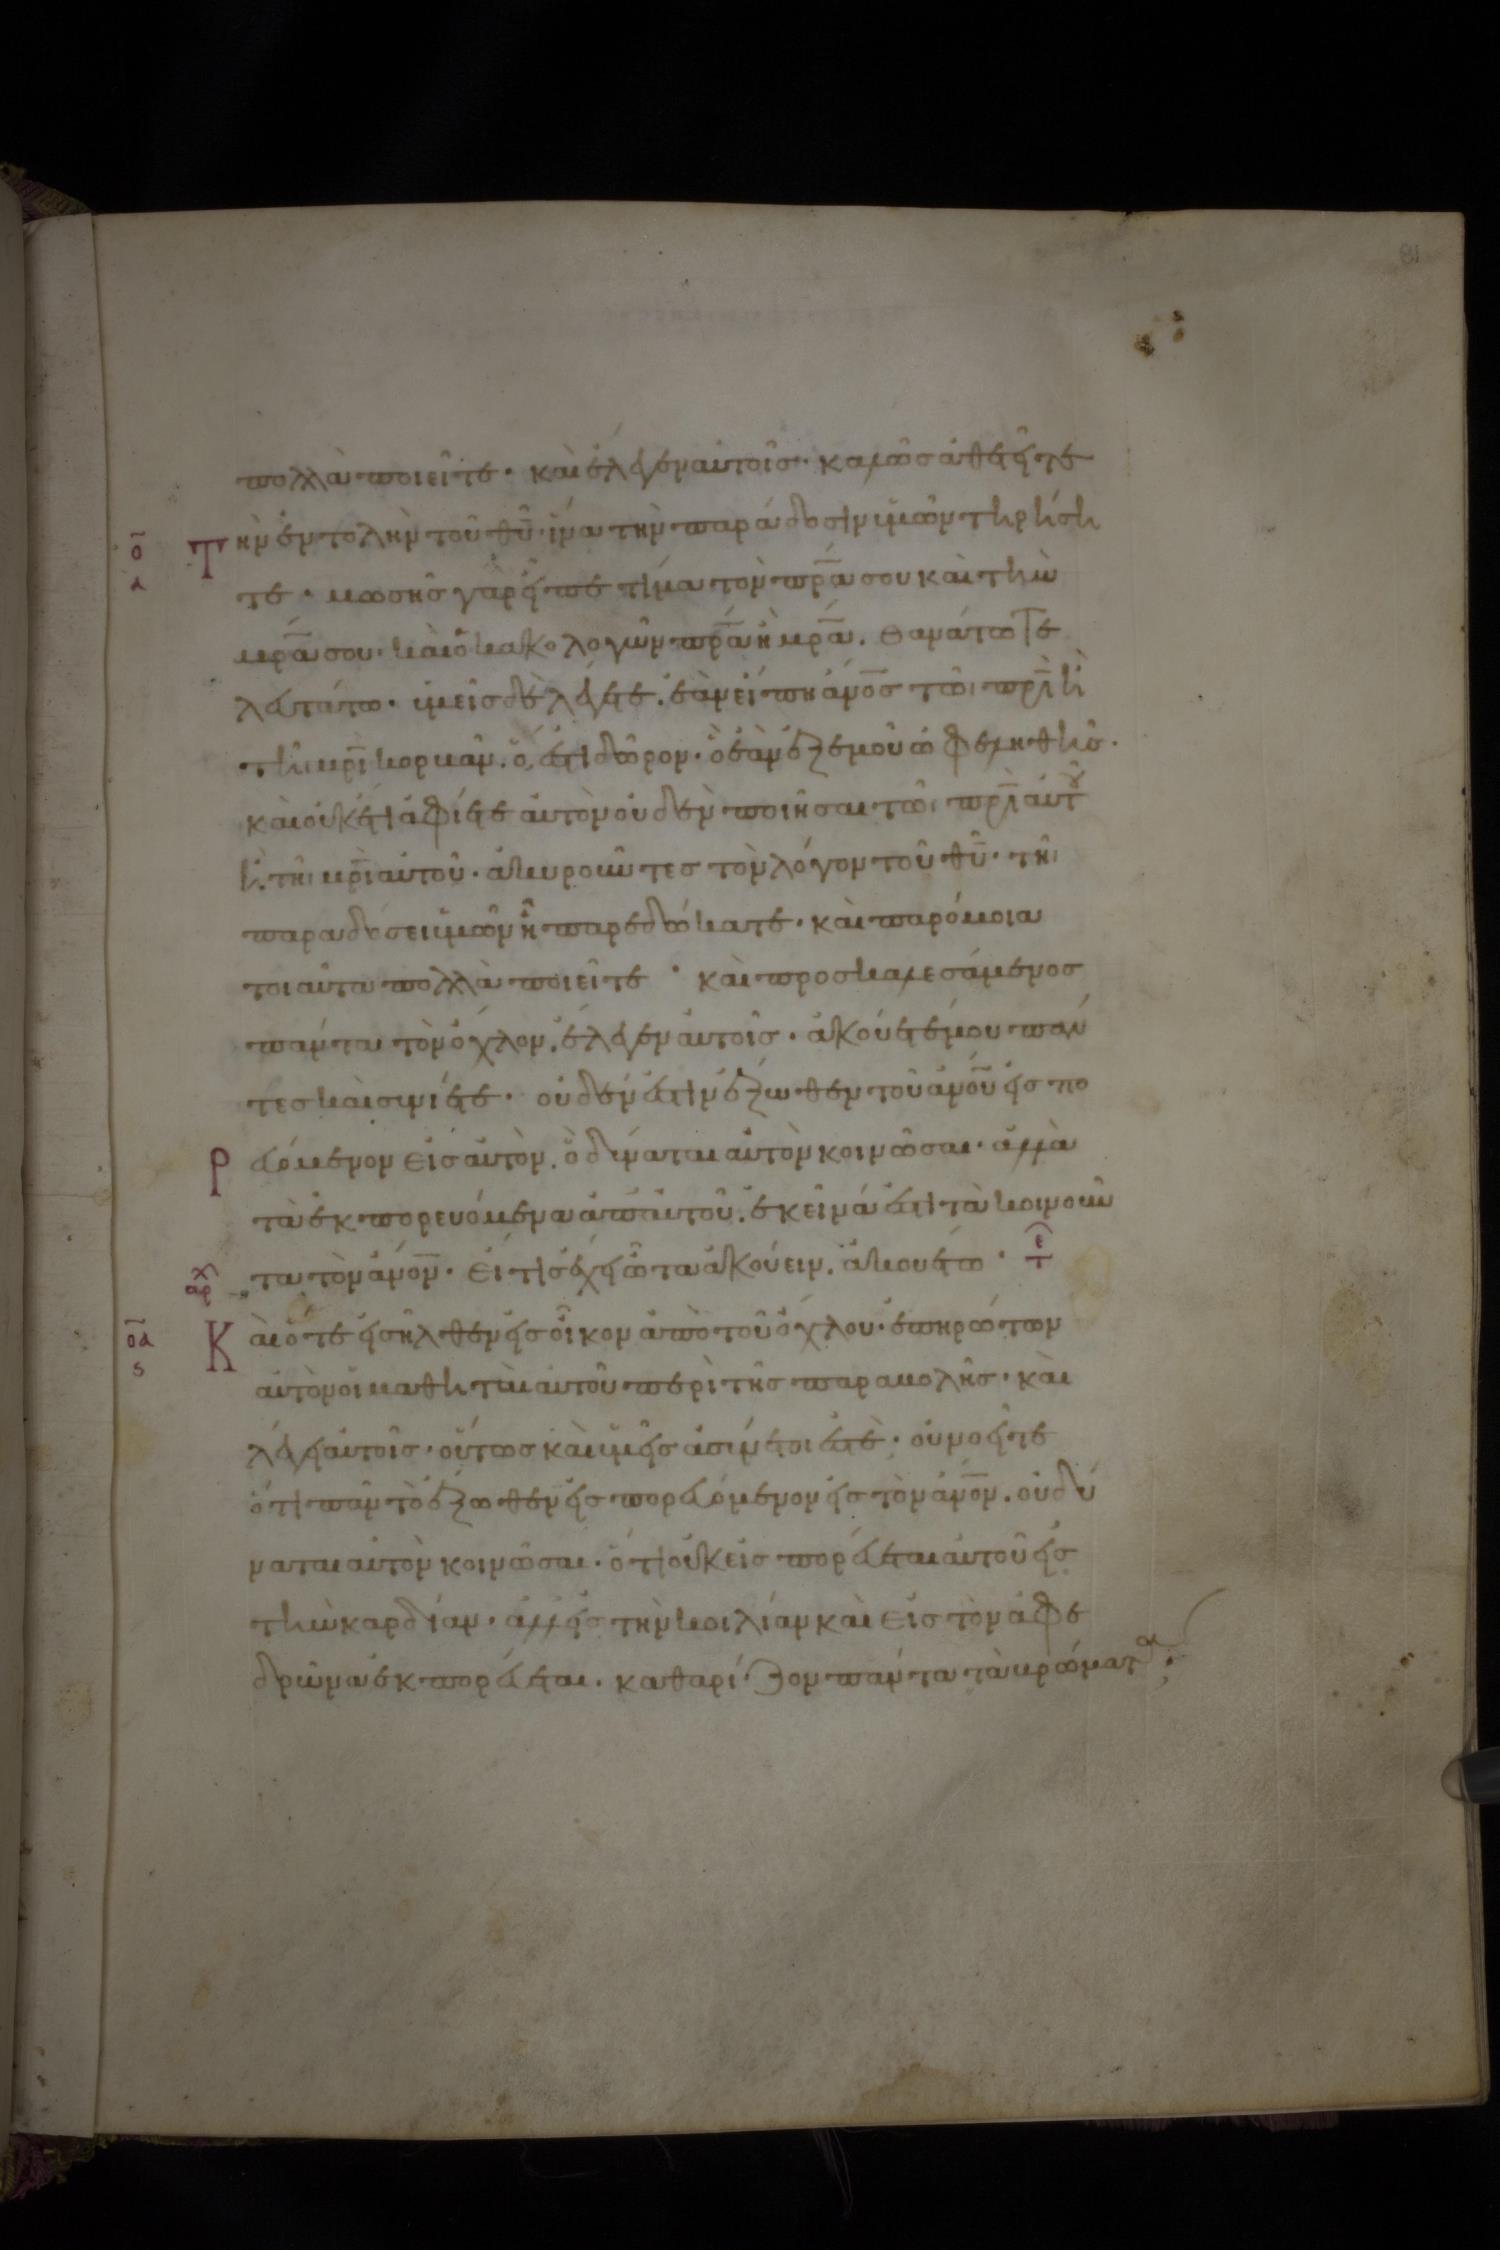 πολλὰ ποιεῖτε· καὶ ἔλεγεν αὐτοῖς· καλῶς ἀθετεῖτε
ο̅
α
Τὴν ἐντολὴν τοῦ θ̅υ̅· ἵνα τὴν παράδοσιν ὑμῶν τηρήση
τε· μωσῆς γὰρ εἶπε τίμα τὸν π̅ρ̅α̅ σου καὶ τὴν
μ̅ρ̅α̅ σου· καὶ ὁ κακολογῶν π̅ρ̅α̅ ἢ μ̅ρ̅α̅. θανάτω τε
λευτάτω· ὑμεῖς δὲ λέγετε. ἐὰν εἴπη ἄν̅ο̅ς τῶι π̅ρ̅ι̅ ἢ
τῆι μ̅ρ̅ι̅ κορκᾶν. ὅ ἐστι δῶρον· ὃ ἐὰν ἐξ ἐμοῦ ὠφεληθῆς·
καὶ οὐκέτι ἀφίετε αὐτὸν οὐδὲν ποιῆσαι τῶι π̅ρ̅ι̅ αὐτοῦ
ἢ τῆι μ̅ρ̅ι̅ αὐτοῦ· ἀκυροῦντες τὸν λόγον τοῦ θ̅υ̅· τῆι
παραδόσει ὑμῶν ἧ παρεδώκατε· καὶ παρόμοια
τοιαῦτα πολλὰ ποιεῖτε· καὶ προσκαλεσάμενος
πάντα τὸν ὄχλον. ἔλεγεν αὐτοῖς· ἀκούετέ μου πάν
τες καὶ συνίετε· οὐδέν ἐστιν ἔξωθεν τοῦ ἀν̅ο̅υ̅ εἰσπο
Ρευόμενον εἰς αὐτὸν. ὃ δύναται αὐτὸν κοινῶσαι· ἀλλὰ
τὰ ἐκπορευόμενα ἀπ' αὐτοῦ. ἐκεῖνά ἐστι τὰ κοινοῦν
αρχ
τα τὸν ἄν̅ο̅ν̅· εἴ τις ἔχει ὦτα ἀκούειν. ἀκουέτω· τε
ο̅α
ς
Καὶ ὅτε εἰσῆλθεν εἰς οἶκον ἀπὸ τοῦ ὄχλου· ἐπηρώτων
αὐτὸν οἱ μαθηταὶ αὐτοῦ περὶ τῆς παραβολῆς· καὶ
λέγει αὐτοῖς· οὕτως καὶ ὑμεῖς ἀσύνετοί ἐστὲ· οὐ νοεῖτε
ὅτι πᾶν τὸ ἔξωθεν εἰσπορευόμενον εἰς τὸν ἄν̅ο̅ν̅. οὐ δύ
ναται αὐτὸν κοινῶσαι· ὅτι οὐκ εἰσπορεύεται αὐτοῦ εἰς
τὴν καρδίαν· ἀλλ' εἰς τὴν κοιλίαν καὶ εἰς τὸν ἀφε
δρῶνα ἐκπορεύεται. καθαρίζον πάντα τὰ βρώματα·